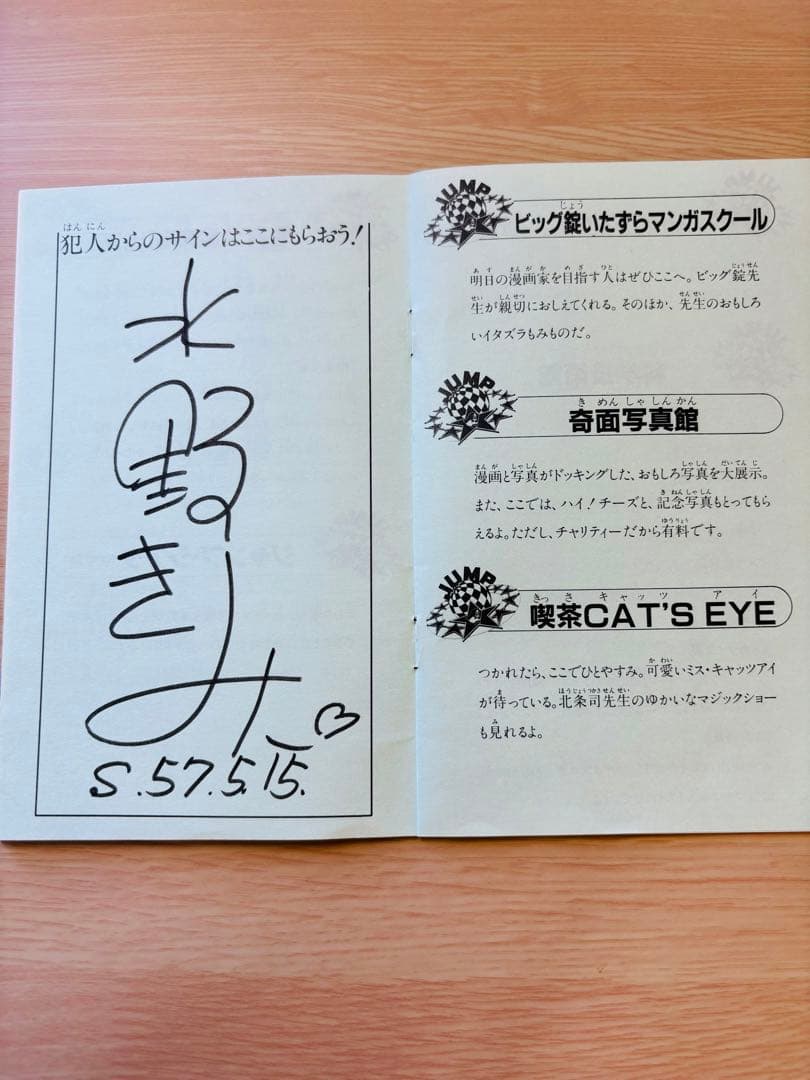 犯人からのサインはここにもらおう!
水野きみ
S.57.5.15.
JUMP
ビッグ錠いたずらマンガスクール
明日の漫画家を目指す人はぜひここへ。ビッグ錠先
生が親切におしえてくれる。そのほか、先生のおもしろ
いイタズラもみものだ。
JUMP
奇面写真館
漫画と写真がドッキングした、おもしろ写真を大展示。
また、ここでは、ハイ!チーズと、記念写真もとってもら
えるよ。ただし、チャリティーだから有料です。
JUMP
喫茶CAT'S EYE
つかれたら、ここでひとやすみ。可愛いミス・キャッツアイ
が待っている。北条司先生のゆかいなマジックショー
も見れるよ。